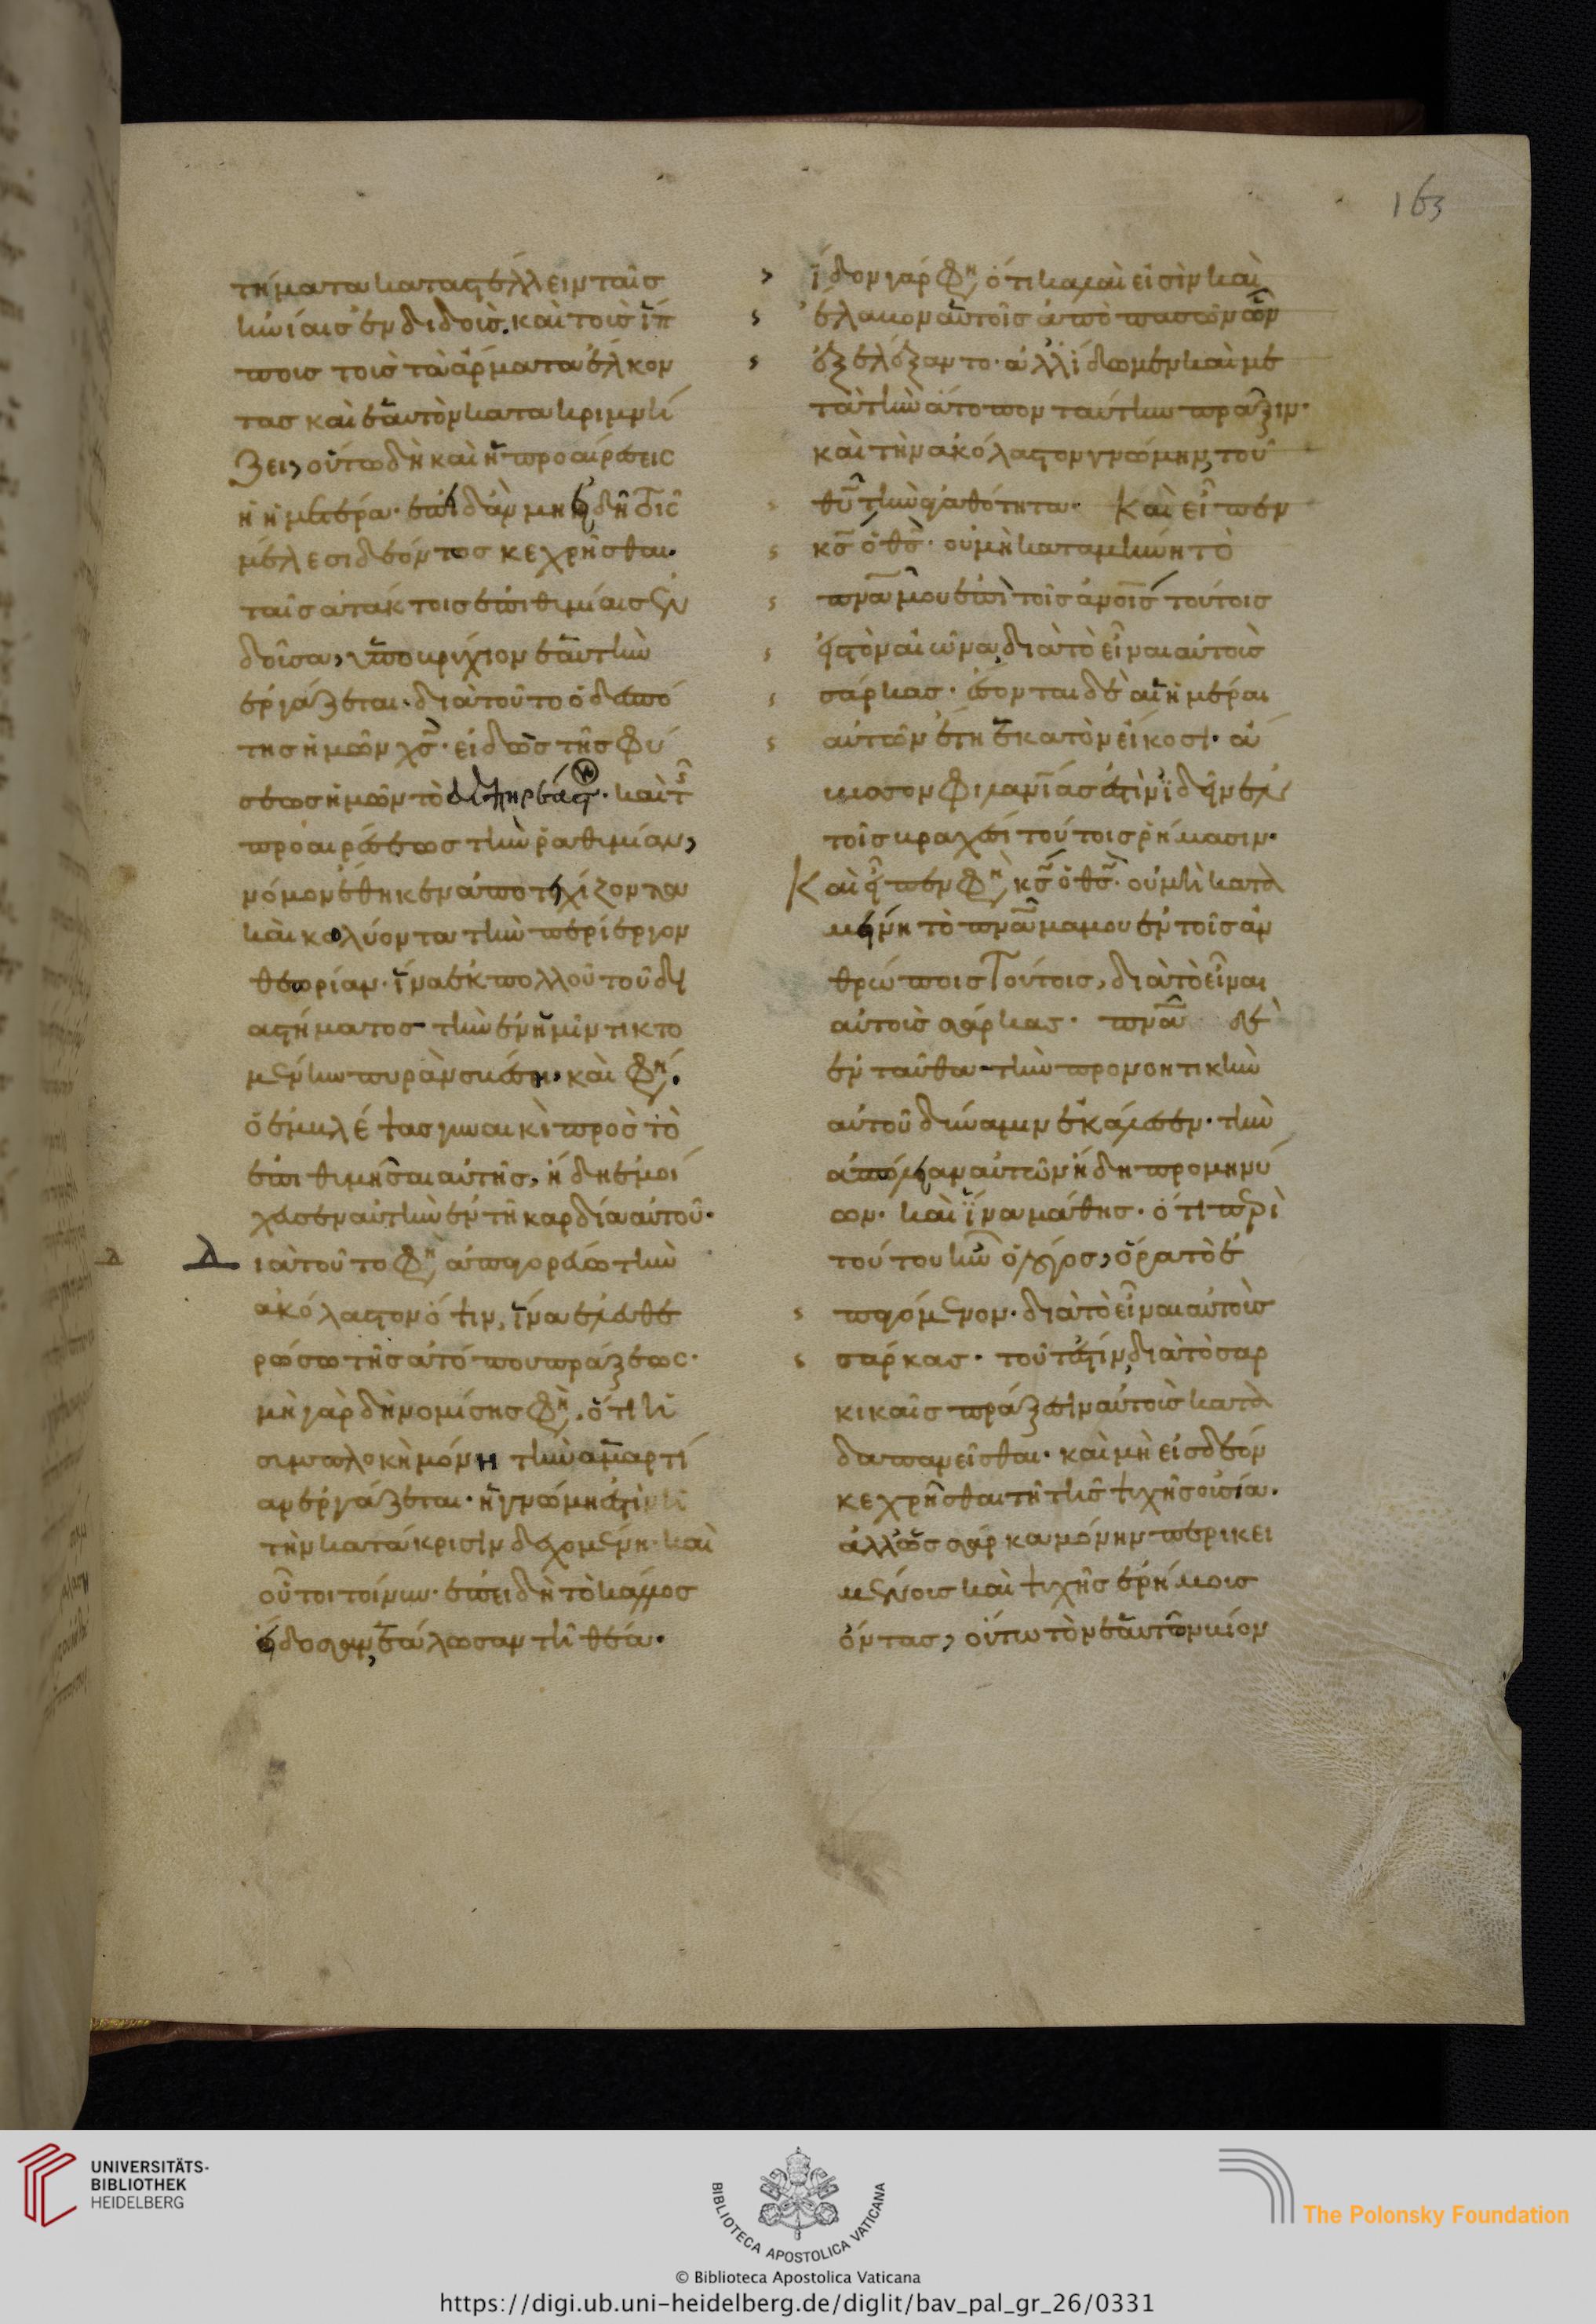 τήματα καταστέλλειν ταῖσ
ἡνίαισ ἐνδιδοὺσ. καὶ τοὺσ ἵπ
πουσ τοὺσ τὰ ἅρματα ἕλκον
τασ καὶ ἑαυτὸν κατακριμνή
ζει, οὕτω δὴ καὶ ἡ προαίρεσισ
ἡ ἡμετέρα· ἐπειδὰν μὴ εἰδῆ τοῖσ
μέλεσι δεόντοσ κεχρῆσθαι·
ταῖσ ἀτάκτοισ ἐπιθυμίαισ ἐν
δοῦσα, ὑποβρύχιον ἑαυτὴν
ἐργάζεται· διὰ τοῦτο ὁ δεσπό
τησ ἡμῶν χσ· εἰδὼσ τῆσ φύ
σεωσ ἡμῶν τὸ καὶ τῆσ
προαιρέσεωσ τὴν ῥαθυμίαν,
νόμον ἔθηκεν ἀποτειχίζοντα
καὶ κολύοντα τὴν περίεργον
θεωρίαν· ἵνα ἐκ πολλοῦ τοῦ δι
αστήματοσ τὴν ἐν ἡμῖν τικτο
μένην πυρὰν σβέση, καὶ φη·
ὁ ἐμβλέψασ γυναικὶ πρὸσ τὸ
ἐπιθυμῆσαι αὐτῆσ, ἤδη ἐμοί
χευσεν αὐτὴν ἐν τῆ καρδία αὐτοῦ·
Διὰ τοῦτο φη ἀπαγορεύω τὴν
ἀκόλαστον ὄψιν, ἵνα ἐλευθε
ρώσω τῆσ ἀτόπου πράξεωσ·
μὴ γὰρ δὴ νομίσησ φη, ὅτι ἡ
συμπλοκὴ μόνη τὴν ἁμαρτί
αν ἐργάζεται· ἡ γνώμη ἐστὶν ἡ
τὴν κατάκρισιν δεχομένη· καὶ
οὗτοι τοίνυν· ἐπειδὴ τὸ κάλλοσ
εἴδοσαν, ἑάλωσαν τῆ θέα·
163
ἴδον γάρ φη ὅτι καλαὶ εἰσὶν καὶ
ἔλαβον αὑτοῖσ ἀπὸ πασῶν ὧν
ἐξελέξαντο· ἀλλ' ἴδωμεν καὶ με
τὰ τὴν ἄτοπον ταύτην πράξιν·
καὶ τὴν ἀκόλαστον γνώμην, τοῦ
θυ τὴν ἀγαθότητα· Καὶ εἶπεν
κσ ὁ θσ· οὐ μὴ καταμείνη τὸ
πνα μου ἐπὶ τοῖσ ἀνοισ τούτοισ
εἰσ τὸν αἰῶνα, διὰ τὸ εἶναι αὐτοὺσ
σάρκασ· ἔσονται δὲ αἱ ἡμέραι
αὐτῶν ἔτη ἑκατὸν εἴκοσι· ἄ
βυσσον φιλανίασ ἐστὶν ἰδεῖν ἐν
τοῖσ βραχέσι τούτοισ ῥήμασιν·
Καὶ εἶπεν φη κσ ὁ θσ· οὐ μὴ κατα
μείνη τὸ πνα μου ἐν τοῖσ ἀν
θρώποισ τούτοισ, διὰ τὸ εἶναι
αὐτοὺσ σάρκασ· πνα δὲ
ἐνταῦθα τὴν προνοητικὴν
αὐτοῦ δύναμιν ἐκάλεσεν· τὴν
ἀπώλειαν αὐτῶν ἤδη προμηνύ
ων· καὶ ἵνα μάθησ· ὅτι περὶ
τούτου ἦν ὁ λόγοσ, ὅρα τὸ ἑ
πόμενον· διὰ τὸ εἶναι αὐτοὺσ
σάρκασ· τοῦτέστιν, διὰ τὸ σαρ
κικαῖσ πράξεσιν αὐτοὺσ κατα
δαπανεῖσθαι· καὶ μὴ εἰσ δέον
κεχρῆσθαι τῆ τῆσ ψυχῆσ οὐσία·
ἀλλ' ὡσ σάρκα μόνην περικει
μένουσ καὶ ψυχῆσ ἐρήμουσ
ὄντασ, οὕτω τὸν ἑαυτῶν βίον
UNIVERSITÄTS-
BIBLIOTHEK
HEIDELBERG
BIBLIOTECA APOSTOLICA VATICANA
© Biblioteca Apostolica Vaticana
The Polonsky Foundation
https://digi.ub.uni-heidelberg.de/diglit/bav_pal_gr_26/0331